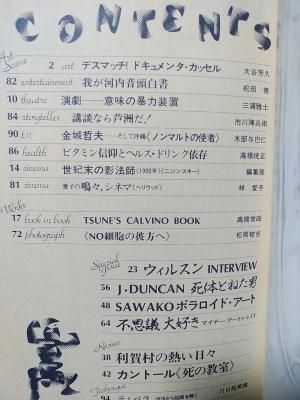 CONTENTS
Art Scene
2 art デスマッチ! ドキュメンタ・カッセル 大谷芳久
82 entertainment 我が河内音頭白書 松田 修
10 theatre 演劇——意味の暴力装置 三浦雅士
84 storyteller 講談なら芦洲だ! 市川捷兵衛
90 t.v. 金城哲夫——そして沖縄《ノンマルトの使者》 木部与巴仁
86 health ビタミン信仰とヘルス・ドリンク依存 高橋晄正
14 cinema 世紀末の影法師(1900年)《ニジンスキー》 編集部
81 cinema 愛子の鳴々、シネマ《ヘリウッド》 林 愛子
Works
17 book in book TSUNE'S CALVINO BOOK 高橋常政
72 photograph 《NO細胞の彼方へ》 松岡
Special Issue
23 ウィルスン INTERVIEW
56 J・DUNCAN 死体とねた男
48 SAWAKO ポラロイド・アート
64 不思議大好き マイナー・アート
Review
38 利賀村の熱い日々
42 カントール《死の教室》
Technique
94 テンペラ 川口起美雄